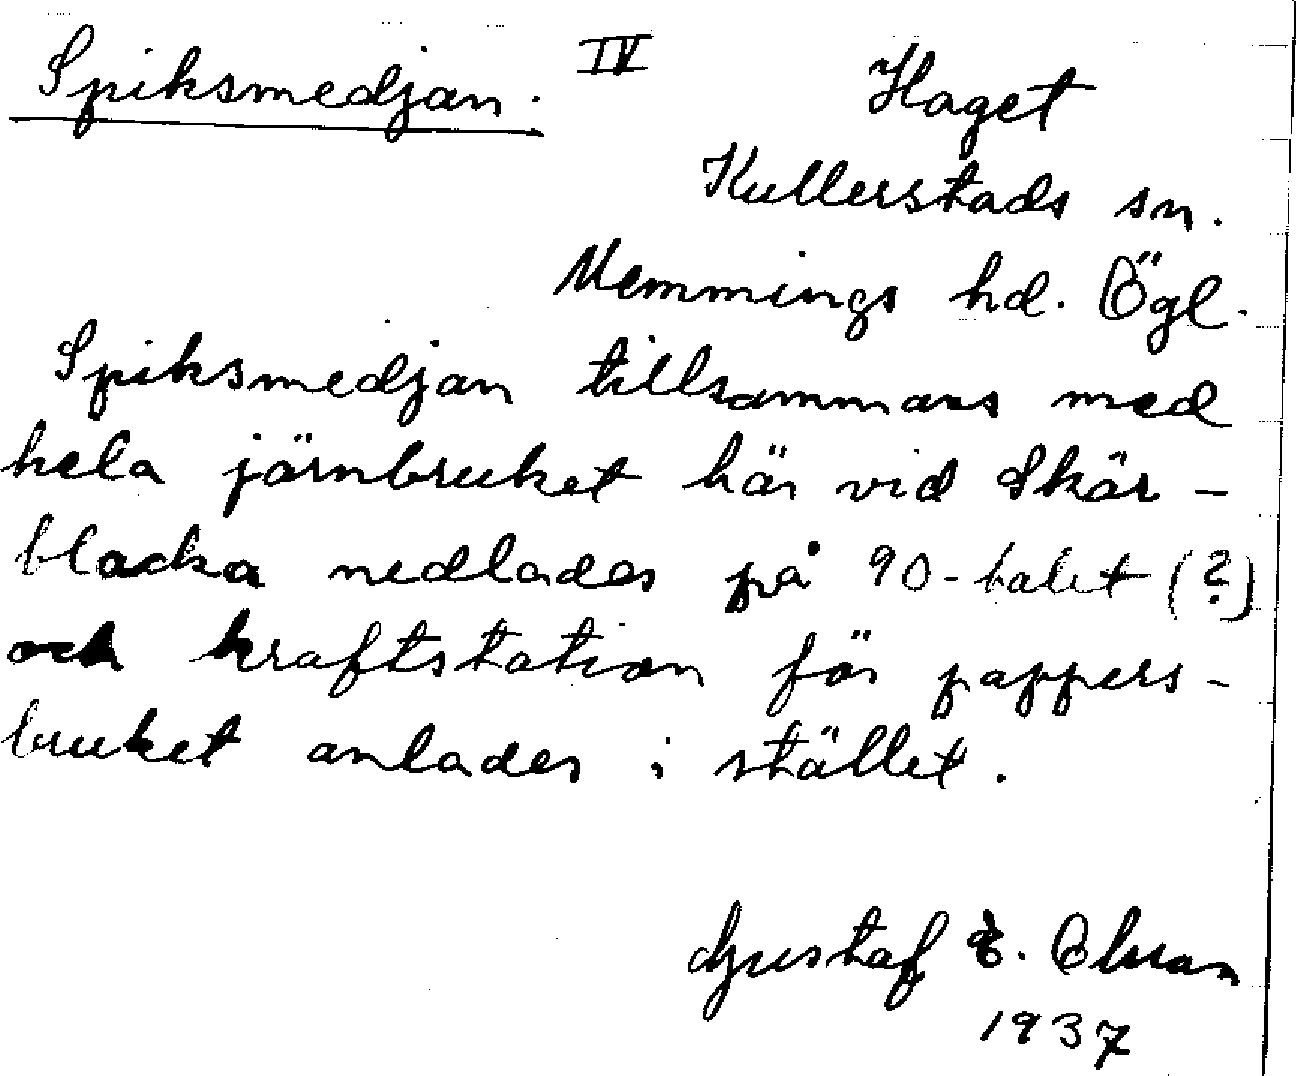 Spiksmedjan. IV Haget
Kullerstads sn.
Memmings hd. Ögl.
Spiksmedjan tillsammans med
hela järnbruket här vid Skär-
blacka nedlades på 90-talet (?)
och kraftstation för pappers-
bruket anlades i stället.
Gustaf E.
1937